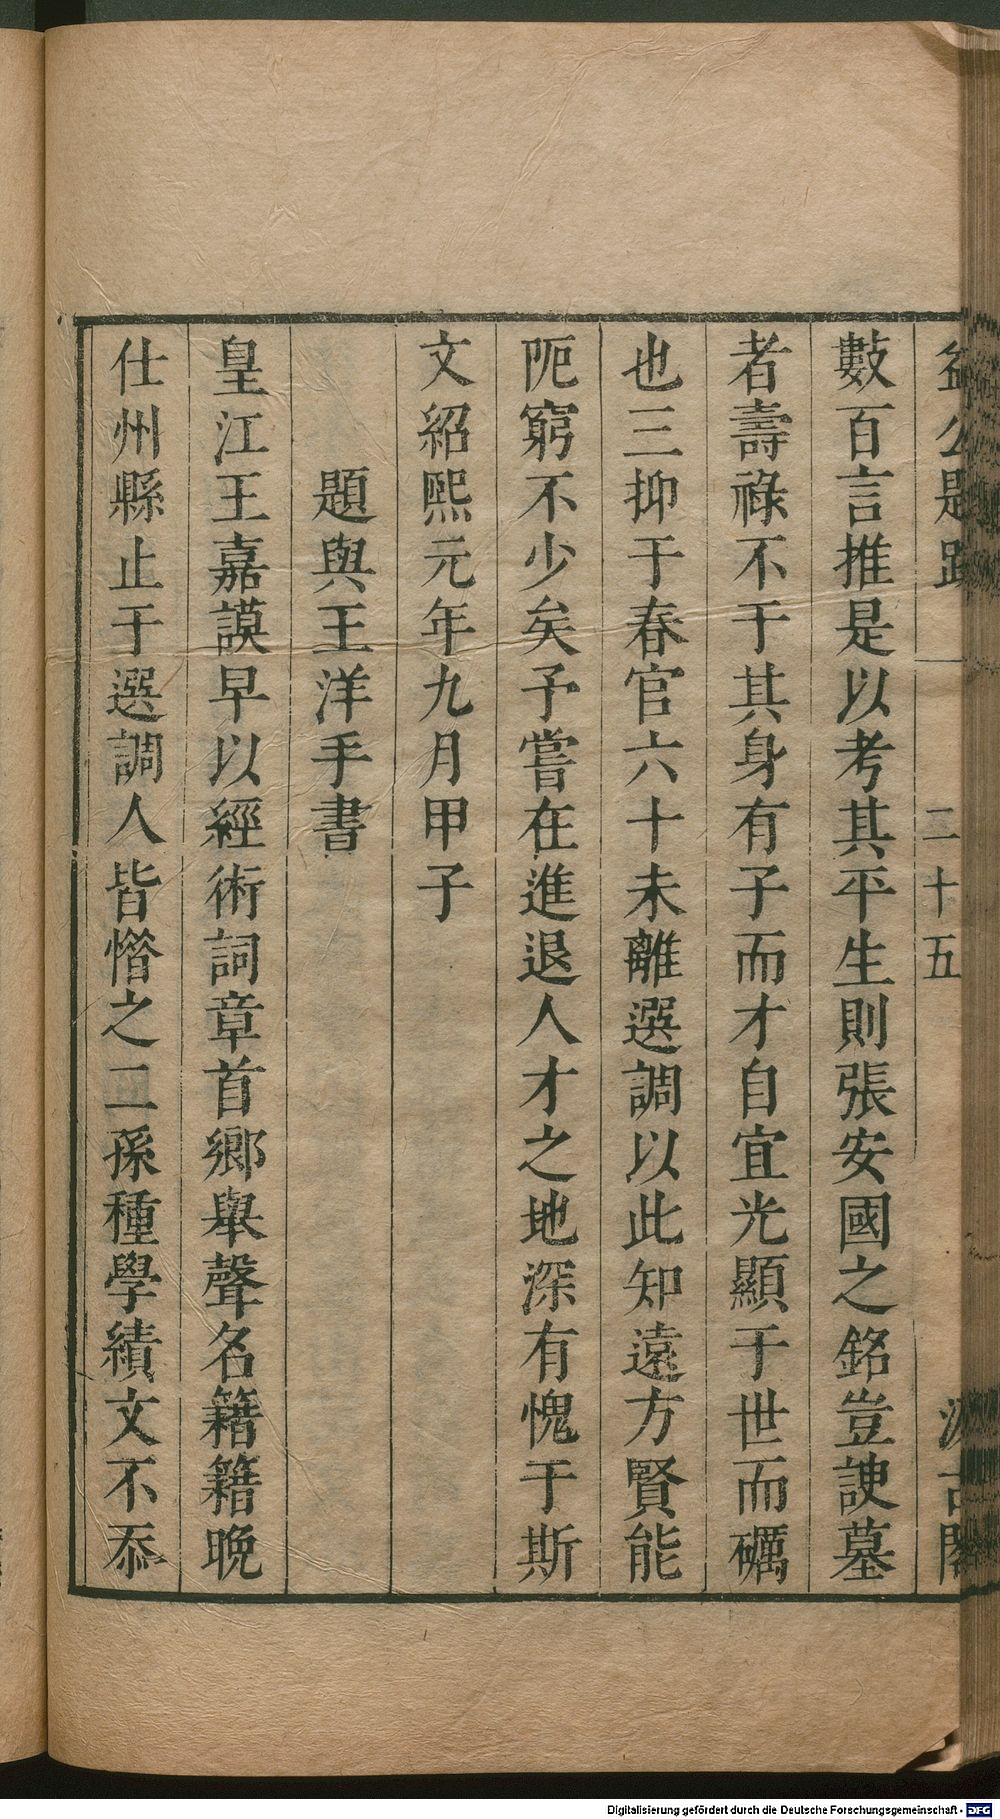 益公題跋 二十五 汲古閣
數百言推是以考其平生則張安國之銘豈諛墓
者壽祿不于其身有子而才自宜光顯于世而礪
也三抑于春官六十未離選調以此知遠方賢能
阨窮不少矣予嘗在進退人才之地深有愧于斯
文紹熙元年九月甲子
題與王洋手書
皇江王嘉謨早以經術詞章首鄉舉聲名籍籍晚
仕州縣止于選調人皆憯之二孫種學績文不忝
Digitalisierung gefördert durch die Deutsche Forschungsgemeinschaft - DFG